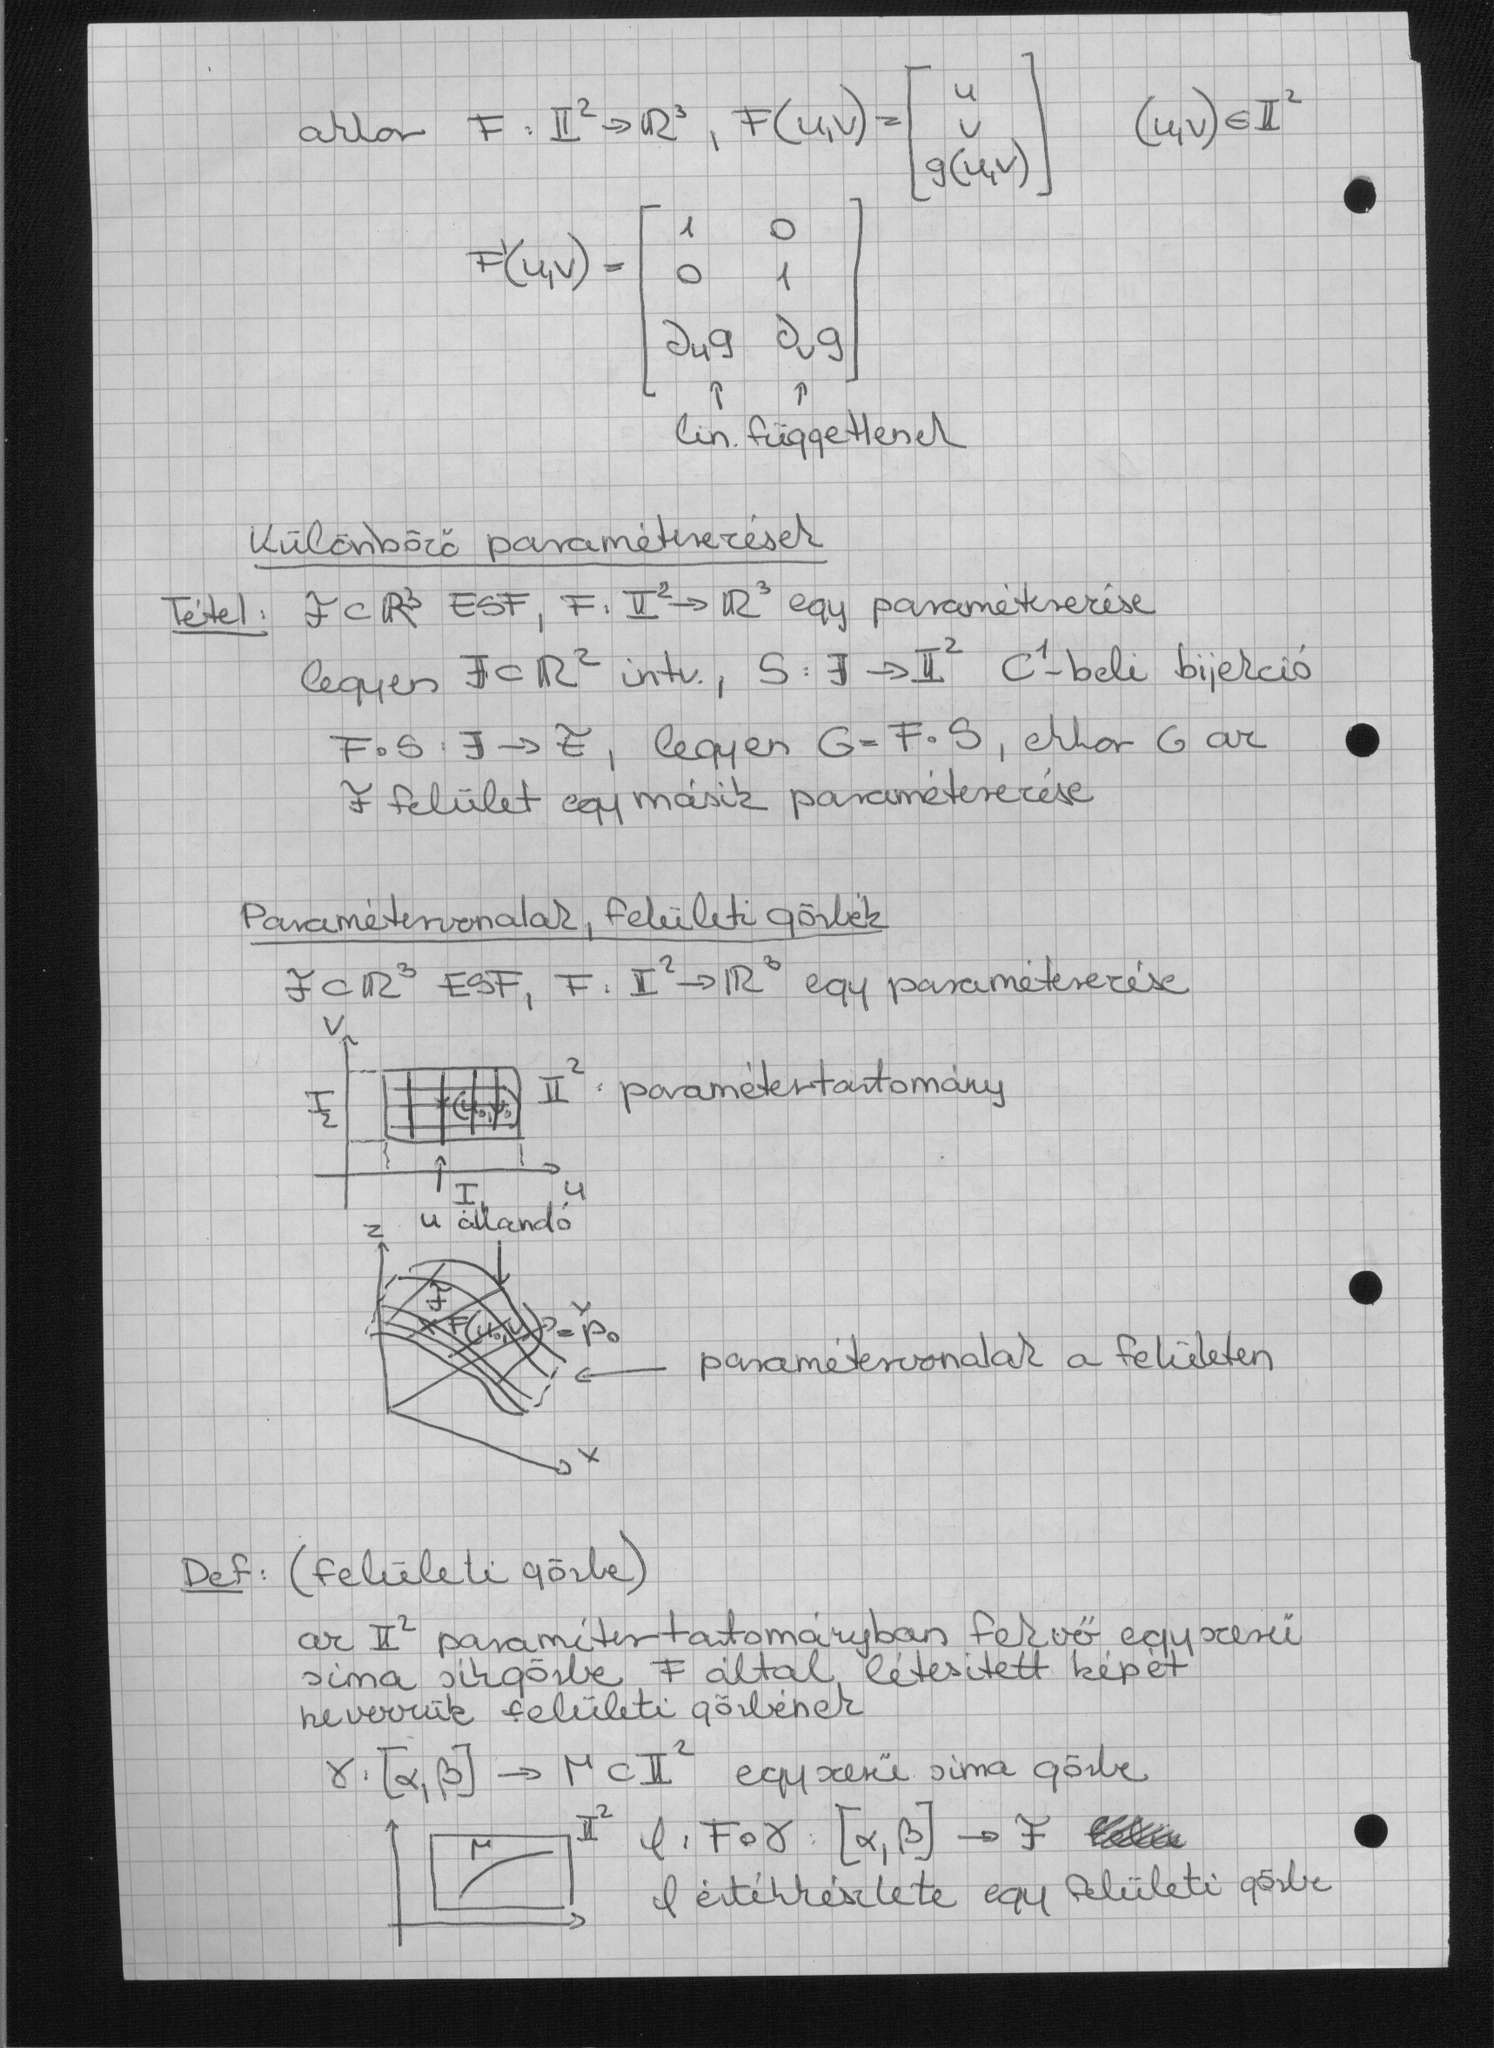 akkor F : 𝕀² → ℝ³, F(u,v) = [ u ; v ; g(u,v) ]   (u,v) ∈ 𝕀²
F'(u,v) = [ 1 0 ; 0 1 ; ∂ᵤg ∂ᵥg ]
↑ ↑
lin. függetlenek
Különböző paraméterezések
Tétel: ℱ ⊂ ℝ³ ESF, F : 𝕀² → ℝ³ egy paraméterezése
legyen 𝕁 ⊂ ℝ² intv., S : 𝕁 → 𝕀² C¹-beli bijekció
F∘S : 𝕁 → ℱ, legyen G = F∘S, ekkor G az
ℱ felület egy másik paraméterezése
Paramétervonalak, felületi görbék
ℱ ⊂ ℝ³ ESF, F : 𝕀² → ℝ³ egy paraméterezése
v
I₂
(u₀,v₀)
𝕀² : paramétertartomány
I₁
u
u állandó
z
ℱ
y
F(u₀,v₀) = p₀
paramétervonalak a felületen
x
Def: (felületi görbe)
az 𝕀² paramétertartományban fekvő egyszerű
sima síkgörbe F által létesített képét
nevezzük felületi görbének
γ : [α,β] → Γ ⊂ 𝕀² egyszerű sima görbe
Γ
𝕀²
φ : F∘γ : [α,β] → ℱ
φ értékkészlete egy felületi görbe